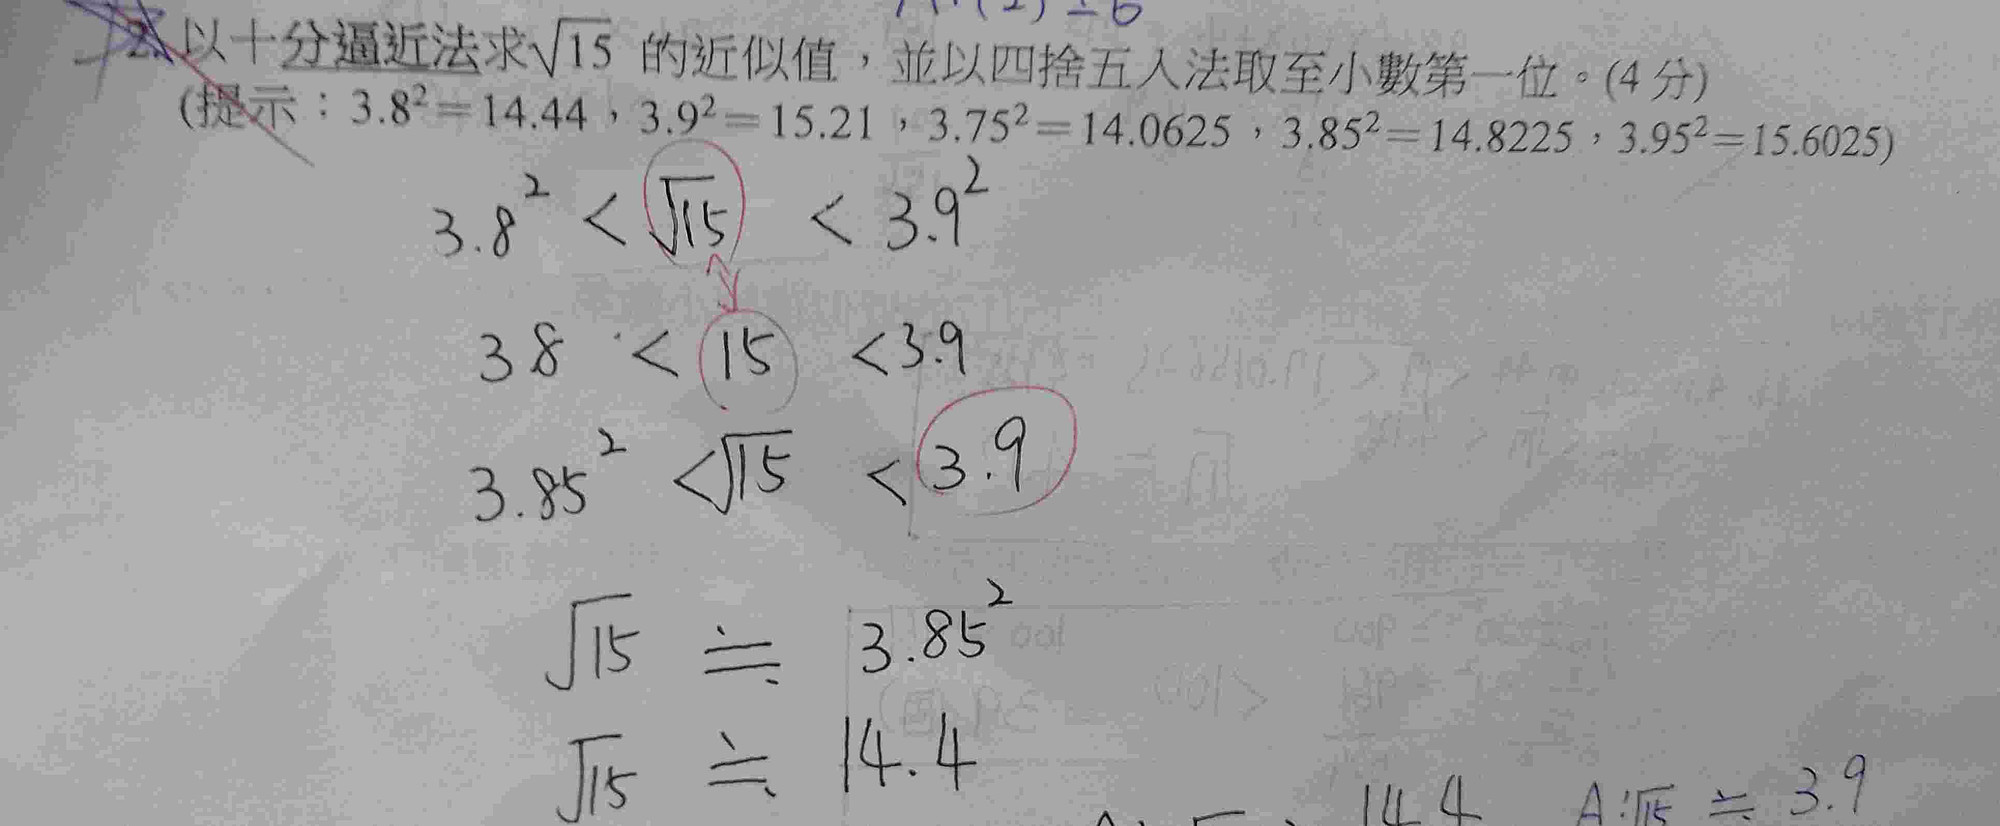 2. 以十分逼近法求√15 的近似值，並以四捨五入法取至小數第一位。(4 分)
(提示：3.8²=14.44，3.9²=15.21，3.75²=14.0625，3.85²=14.8225，3.95²=15.6025)
3.8² < √15 < 3.9²
3.8 < 15 < 3.9
3.85² < √15 < 3.9
√15 ≒ 3.85²
√15 ≒ 14.4
14.4 A:√15 ≒ 3.9